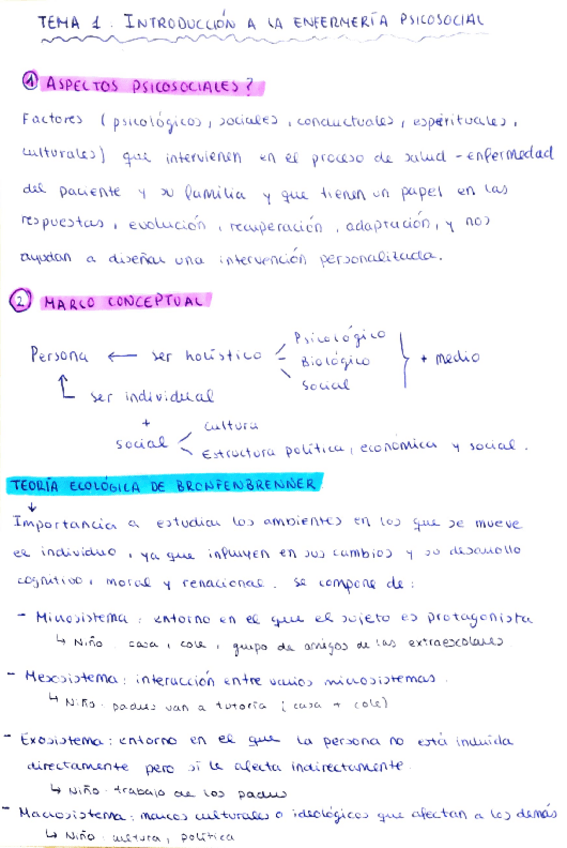 TEMA 1. INTRODUCCIÓN A LA ENFERMERÍA PSICOSOCIAL
① ASPECTOS PSICOSOCIALES?
Factores (psicológicos, sociales, conductuales, espirituales,
culturales) que intervienen en el proceso de salud-enfermedad
del paciente y su familia y que tienen un papel en las
respuestas, evolución, recuperación, adaptación, y nos
ayudan a diseñar una intervención personalizada.
② MARCO CONCEPTUAL
Persona ← ser holístico
Psicológico
Biológico
Social
+ medio
ser individual
+
social
cultura
Estructura política, económica y social.
TEORÍA ECOLÓGICA DE BRONFENBRENNER
Importancia a estudiar los ambientes en los que se mueve
el individuo, ya que influyen en sus cambios y su desarrollo
cognitivo, moral y relacional. Se compone de:
- Microsistema: entorno en el que el sujeto es protagonista
↳ Niño: casa, cole, grupo de amigos de las extraescolares
- Mesosistema: interacción entre varios microsistemas.
↳ Niño: padres van a tutoría (casa + cole)
- Exosistema: entorno en el que la persona no está incluida
directamente pero sí le afecta indirectamente.
↳ Niño: trabajo de los padres
- Macrosistema: marcos culturales o ideológicos que afectan a los demás
↳ Niño: cultura, política